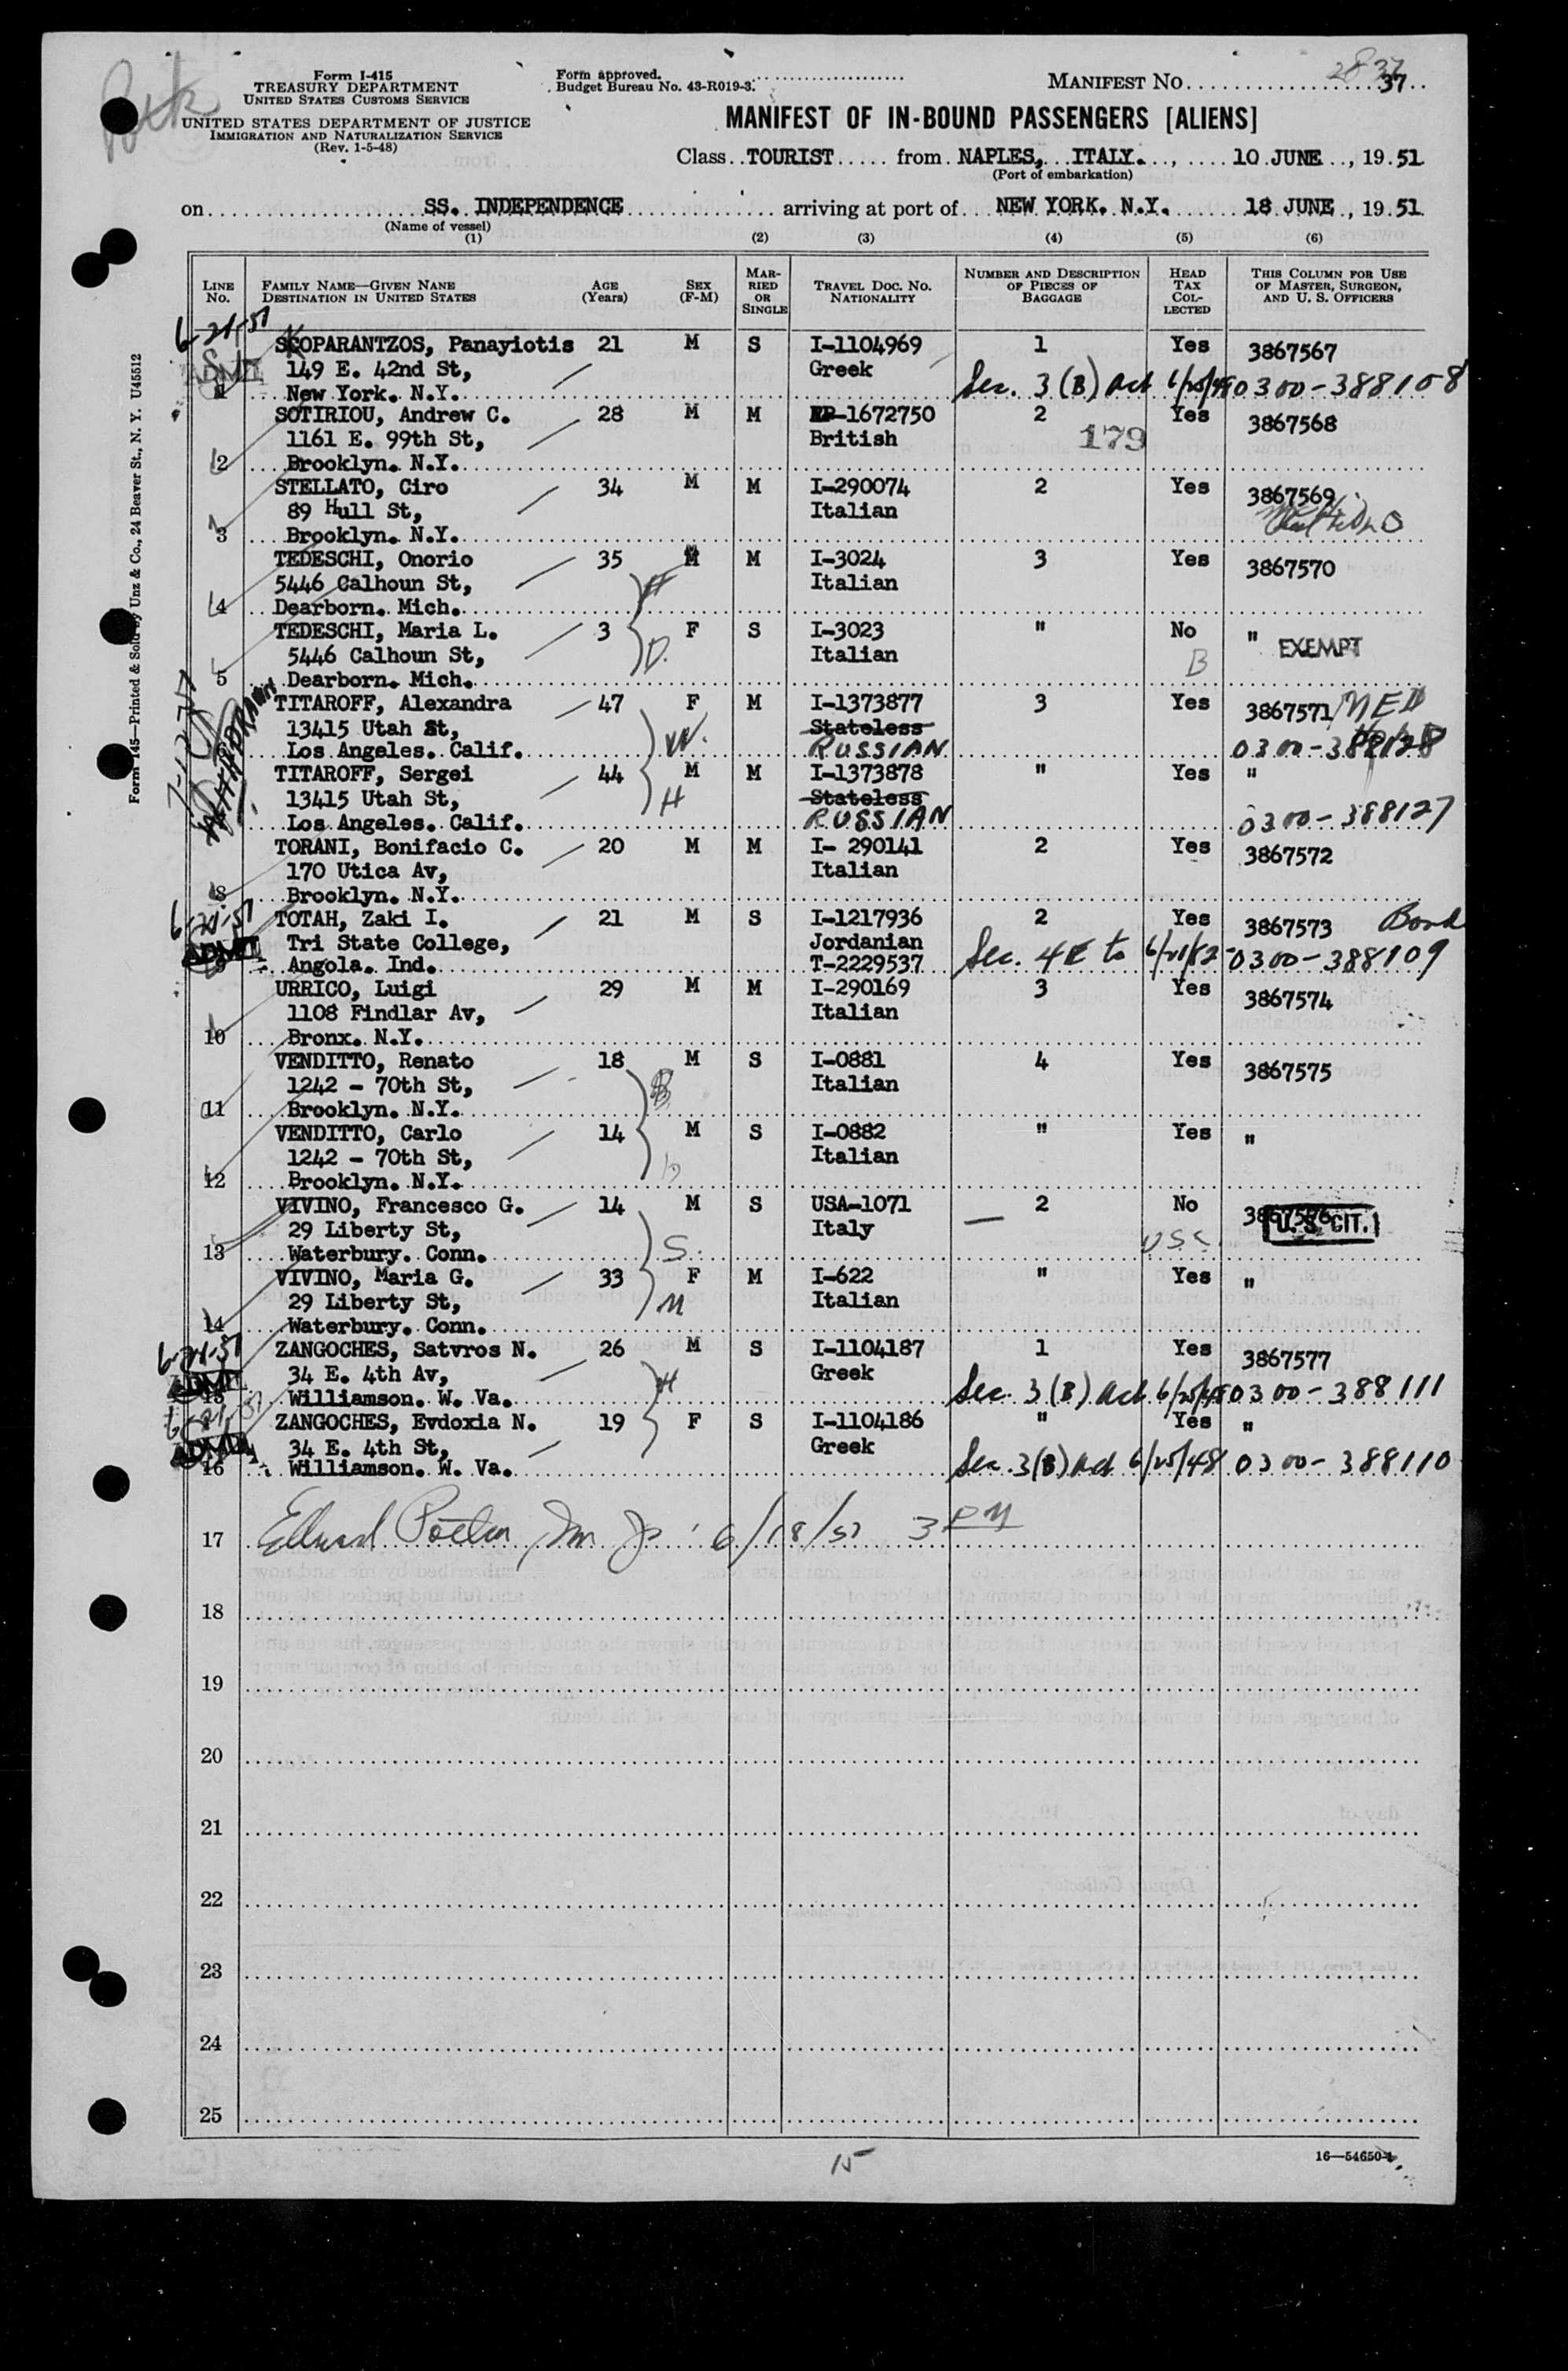 Form I-415
TREASURY DEPARTMENT
UNITED STATES CUSTOMS SERVICE
UNITED STATES DEPARTMENT OF JUSTICE
IMMIGRATION AND NATURALIZATION SERVICE
(Rev. 1-5-48)
Form approved.
Budget Bureau No. 43-R019-3.
2837
MANIFEST NO. 37
MANIFEST OF IN-BOUND PASSENGERS [ALIENS]
Class TOURIST from NAPLES, ITALY. , 10 JUNE , 19 51
(Port of embarkation)
on SS. INDEPENDENCE arriving at port of NEW YORK. N.Y. 18 JUNE , 19 51
(Name of vessel)
(1) (2) (3) (4) (5) (6)
LINE NO. FAMILY NAME—GIVEN NANE DESTINATION IN UNITED STATES AGE (Years) SEX (F-M) MARRIED OR SINGLE TRAVEL DOC. NO. NATIONALITY NUMBER AND DESCRIPTION OF PIECES OF BAGGAGE HEAD TAX COLLECTED THIS COLUMN FOR USE OF MASTER, SURGEON, AND U. S. OFFICERS
6-21-51
SKOPARANTZOS, Panayiotis 21 M S I-1104969 1 Yes 3867567
ADMIT 149 E. 42nd St, Greek Sec. 3 (B) Act 6/25/48 0300-388108
1 New York. N.Y.
SOTIRIOU, Andrew C. 28 M M RP-1672750 2 Yes 3867568
1161 E. 99th St, British 179
2 Brooklyn. N.Y.
STELLATO, Ciro 34 M M I-290074 2 Yes 3867569
89 Hull St, Italian
3 Brooklyn. N.Y.
TEDESCHI, Onorio 35 M M I-3024 3 Yes 3867570
5446 Calhoun St, Italian
4 Dearborn. Mich.
TEDESCHI, Maria L. 3 F S I-3023 " No "
5446 Calhoun St, D. Italian B EXEMPT
5 Dearborn. Mich.
TITAROFF, Alexandra 47 F M I-1373877 3 Yes 3867571 MED
13415 Utah St, W. Stateless
Los Angeles. Calif. RUSSIAN 0300-388128
WITHDRAWN
TITAROFF, Sergei 44 M M I-1373878 " Yes "
13415 Utah St, H Stateless
Los Angeles. Calif. RUSSIAN 0300-388127
TORANI, Bonifacio C. 20 M M I- 290141 2 Yes 3867572
170 Utica Av, Italian
8 Brooklyn. N.Y.
6-21-51
TOTAH, Zaki I. 21 M S I-1217936 2 Yes 3867573 Bond
ADMIT Tri State College, Jordanian Sec. 4E to 6/21/52 0300-388109
9 Angola. Ind. T-2229537
URRICO, Luigi 29 M M I-290169 3 Yes 3867574
1108 Findlar Av, Italian
10 Bronx. N.Y.
VENDITTO, Renato 18 M S I-0881 4 Yes 3867575
1242 - 70th St, B Italian
11 Brooklyn. N.Y.
VENDITTO, Carlo 14 M S I-0882 " Yes "
1242 - 70th St, Italian
12 Brooklyn. N.Y.
VIVINO, Francesco G. 14 M S USA-1071 2 No 3867576 U. S. CIT.
29 Liberty St, S. Italy USC
13 Waterbury. Conn.
VIVINO, Maria G. 33 F M I-622 " Yes "
29 Liberty St, M Italian
14 Waterbury. Conn.
6-21-51
ZANGOCHES, Satvros N. 26 M S I-1104187 1 Yes 3867577
ADMIT 34 E. 4th Av, H Greek Sec. 3(B) Act 6/25/48 0300-388111
15 Williamson. W. Va.
6-21-51
ZANGOCHES, Evdoxia N. 19 F S I-1104186 " Yes "
ADMIT 34 E. 4th St, Greek Sec. 3(B) Act 6/25/48 0300-388110
16 Williamson. W. Va.
17 6/18/51 3 PM
18
19
20
21
22
23
24
25
15
16—54650-1
Form 145—Printed & Sold by Unz & Co., 24 Beaver St., N. Y. U45512